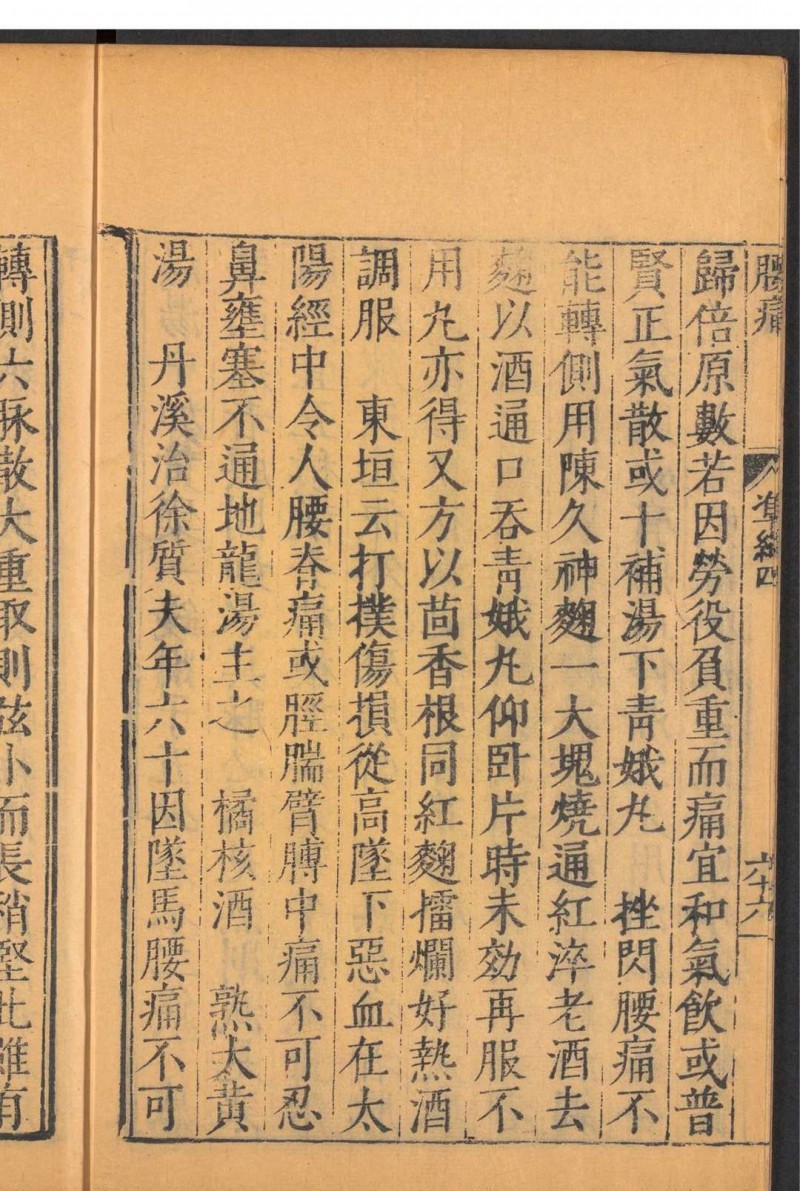 腰痛 準繩四 六十六
歸倍原數若因勞役負重而痛宜和氣飲或普
賢正氣散或十補湯下靑娥丸 挫閃腰痛不
能轉側用陳久神麴一大塊燒通紅淬老酒去
麴以酒通口吞靑娥丸仰卧片時未効再服不
用丸亦得又方以茴香根同紅麴擂爛好熱酒
調服 東垣云打撲傷損從高墜下惡血在太
陽經中令人腰脊痛或脛腨臂膊中痛不可忍
鼻壅塞不通地龍湯主之 橘核酒 熟大黃
湯 丹溪治徐質夫年六十因墜馬腰痛不可
轉側六脉散大重取則弦小而長稍堅此雖有